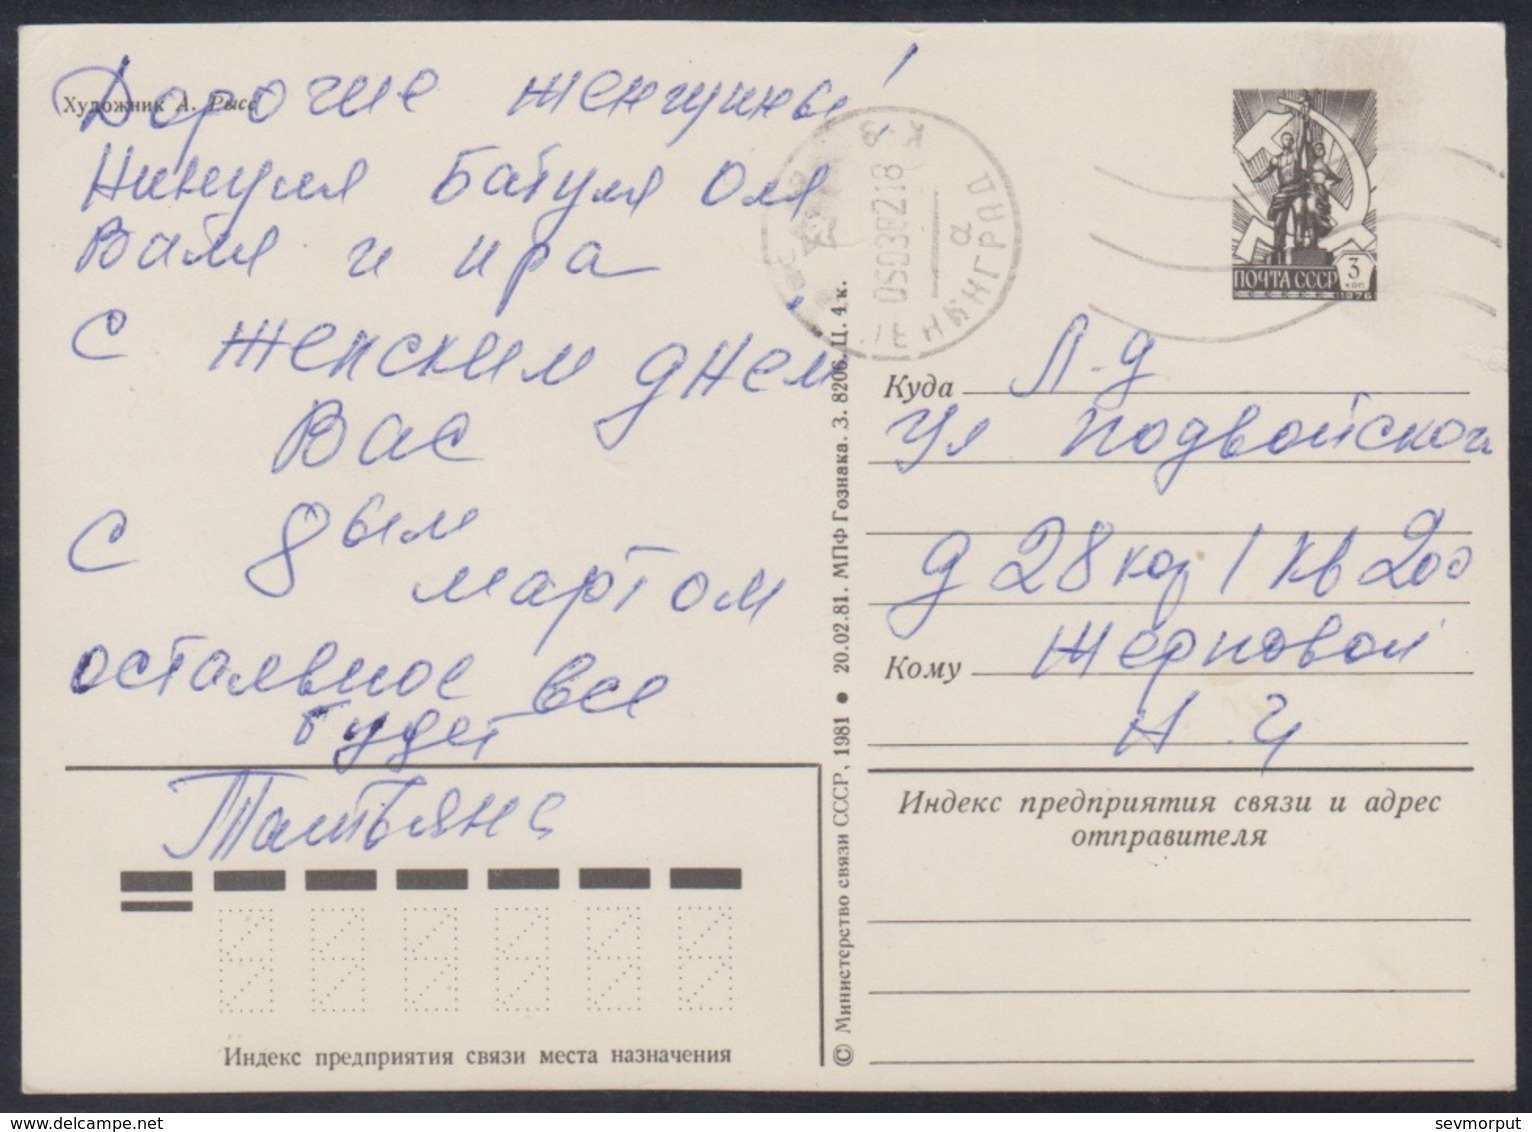 Художник А. Рысс
Дорогие женщины!
Нинуля Батуля Оля
Валя и Ира
с женским днем
Вас
с 8ым
мартом
остальное все
будет
Татьяна
Индекс предприятия связи места назначения
© Министерство связи СССР, 1981 ● 20.02.81. МПФ Гознака. З. 8206. Ц. 4 к.
ПОЧТА СССР 3 КОП
1976
Куда Л-д
ул Подвойского
д 28 кор 1 кв 200
Кому Жерновой
Н. Ч
Индекс предприятия связи и адрес
отправителя
sevmorput